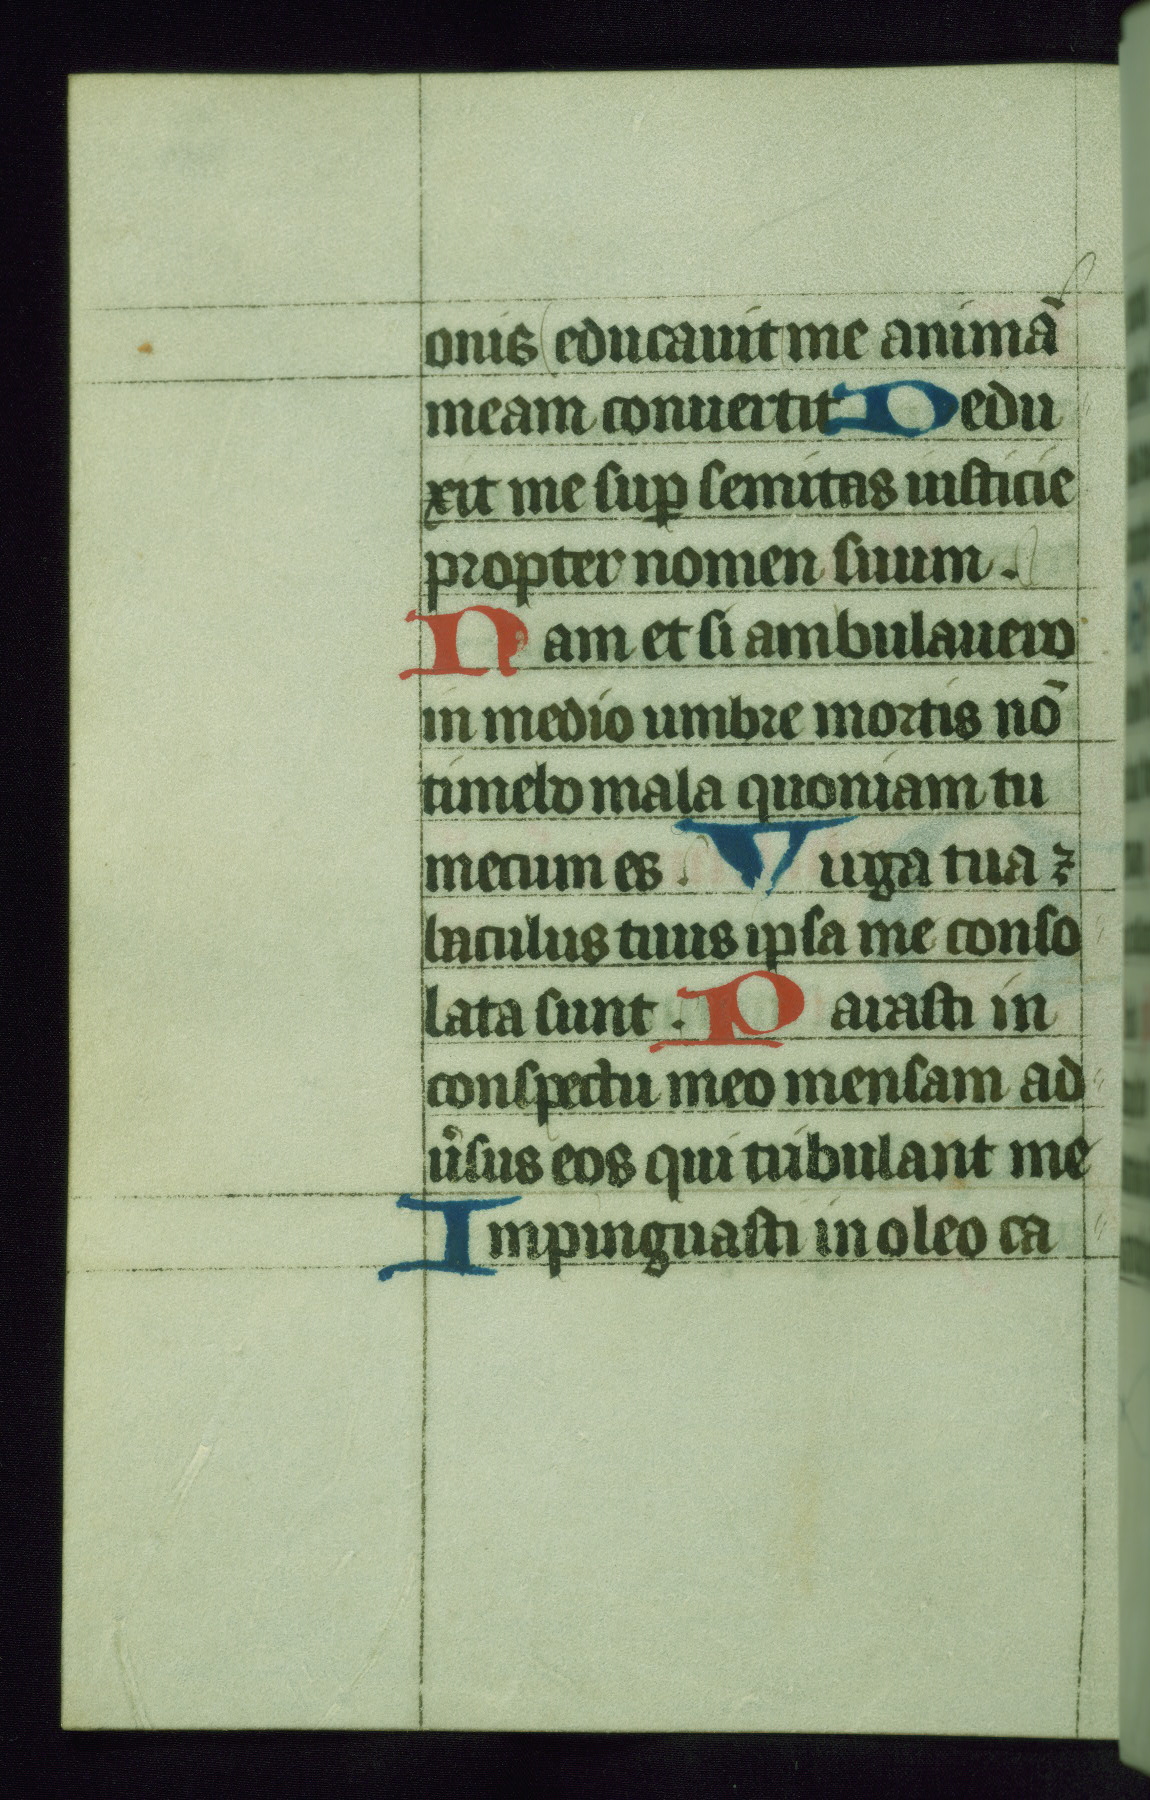 onis educauit me animā
meam conuertit Dedu
xit me sup semitas iusticie
propter nomen suum.
Nam et si ambulauero
in medio umbre mortis nō
timebo mala quoniam tu
mecum es. Uirga tua ⁊
baculus tuus ipsa me conso
lata sunt. Parasti in
conspectu meo mensam ad
u̾sus eos qui tribulant me
Impinguasti in oleo ca